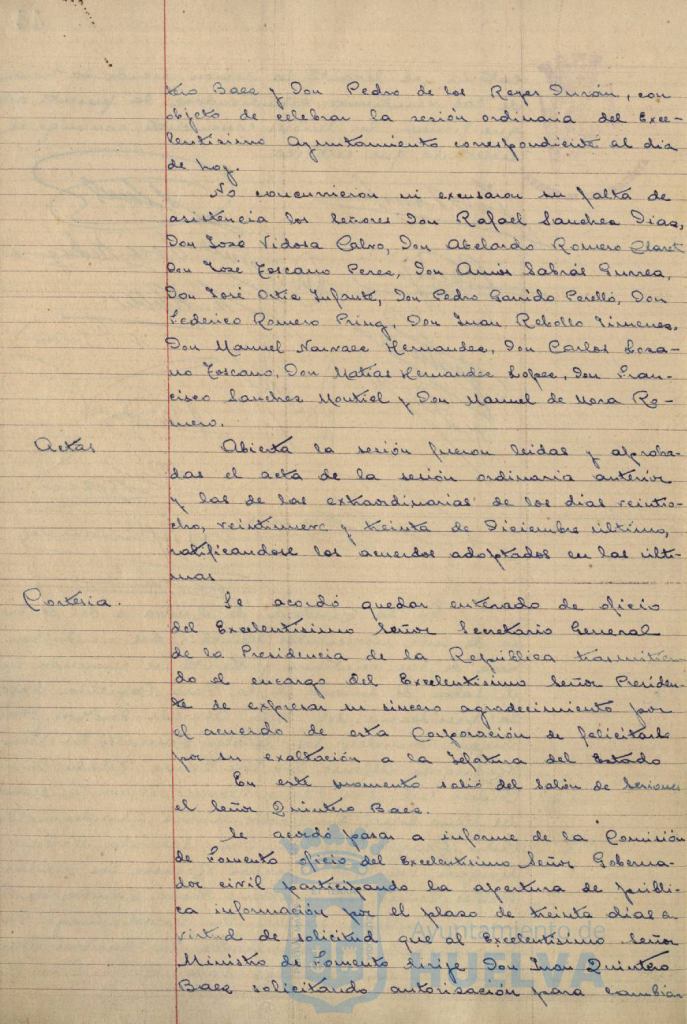 tero Baez y Don Pedro de los Reyes Durán, con
objeto de celebrar la sesión ordinaria del Exce-
lentísimo Ayuntamiento correspondiente al dia
de hoy.
No concurrieron ni excusaron su falta de
asistencia los Señores Don Rafael Sanchez Diaz,
Don José Vidosa Calvo, Don Abelardo Romero Claret
Don José Toscano Perez, Don Amós Sabrás Gurrea,
Don José Ortiz Infante, Don Pedro Garrido Perelló, Don
Federico Romero Pring, Don Juan Rebollo Jimenez,
Don Manuel Narvaez Hernandez, Don Carlos Loza-
no Toscano, Don Matías Hernandez Lopez, Don Fran-
cisco Sanchez Montiel y Don Manuel de Mora Ro-
mero.
Actas
Abierta la sesión fueron leidas y aproba-
das el acta de la sesión ordinaria anterior
y las de las extraordinarias de los dias veintio-
cho, veintinueve y treinta de Diciembre último,
ratificandose los acuerdos adoptados en las últi-
mas
Cortesia.
Se acordó quedar enterado de oficio
del Excelentísimo Señor Secretario General
de la Presidencia de la República trasmitien-
do el encargo del Excelentísimo Señor Presiden-
te de expresar su sincero agradecimiento por
el acuerdo de esta Corporación de felicitarle
por su exaltación a la Jefatura del Estado
En este momento salió del Salón de Sesiones
el Señor Quintero Baez.
Se acordó pasar a informe de la Comisión
de Fomento oficio del Excelentísimo Señor Goberna-
dor civil participando la apertura de públi-
ca información por el plazo de treinta dias en
virtud de solicitud que al Excelentísimo Señor
Ministro de Fomento dirije Don Juan Quintero
Baez solicitando autorización para cambiar
Ayuntamiento de
HUELVA